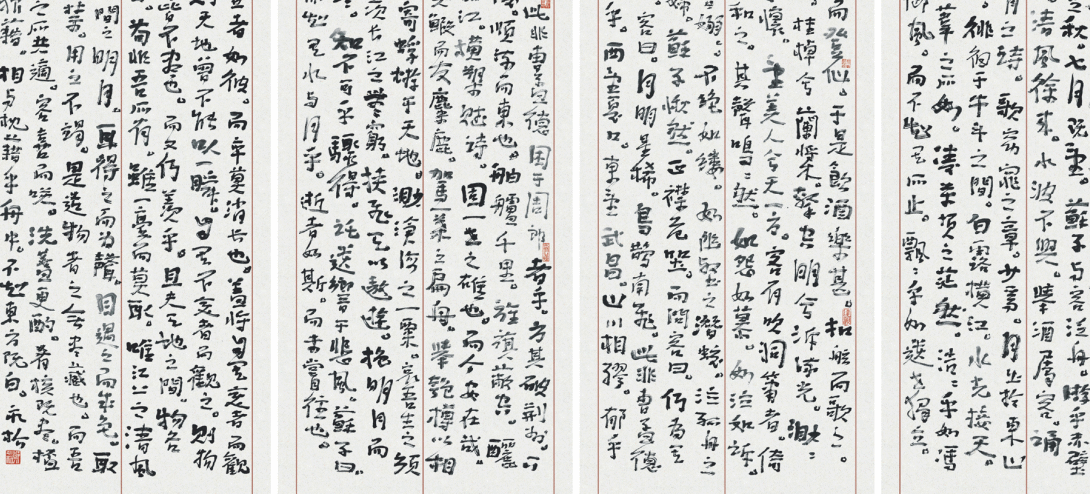 之秋七月既望。蘇子与客泛舟。遊乎赤壁
清風徐来。水波不興。舉酒屬客。誦
月之詩。歌窈窕之章。少焉。月出於東山
徘徊于牛斗之間。白露横江。水光接天。
葦之所如。凌萬頃之茫然。浩浩乎如馮
御風。而不知其所止。飄飄乎如遺世獨立。
而登仙。于是飲酒樂甚。扣舷而歌之。
桂棹兮蘭槳。擊空明兮泝流光。渺渺
懷。望美人兮天一方。客有吹洞簫者。倚
和之。其聲嗚嗚然。如怨如慕。如泣如訴。
嫋。不絕如縷。舞幽壑之潛蛟。泣孤舟之
婦。蘇子愀然。正襟危坐。而問客曰。何為其
客曰。月明星稀。烏鵲南飛。此非曹孟德
乎。西望夏口。東望武昌。山川相繆。郁乎
此非曹孟德困于周郎者乎。方其破荊州。下
順流而東也。舳艫千里。旌旗蔽空。釃
江。横槊賦詩。固一世之雄也。而今安在哉。
蝦而友麋鹿。駕一葉之扁舟。舉匏樽以相
寄蜉蝣乎天地。渺滄海之一粟。哀吾生之須
羨長江之無窮。挟飛仙以遨遊。抱明月而
知不可乎驟得。託遺響于悲風。蘇子曰。
知夫水与月乎。逝者如斯。而未嘗往也。
虛者如彼。而卒莫消長也。蓋將自其變者而觀
則天地曾不能以一瞬。自其不變者而觀之。則物
皆不盡也。而又何羨乎。且夫天地之間。物各
苟非吾所有。雖一毫而莫取。唯江上之清風
間之明月。耳得之而為聲。目遇之而成色。取
禁。用之不竭。是造物者之無盡藏也。而吾
之所共適。客喜而笑。洗盞更酌。肴核既盡。杯盤
狼藉。相与枕藉乎舟中。不知東方既白。